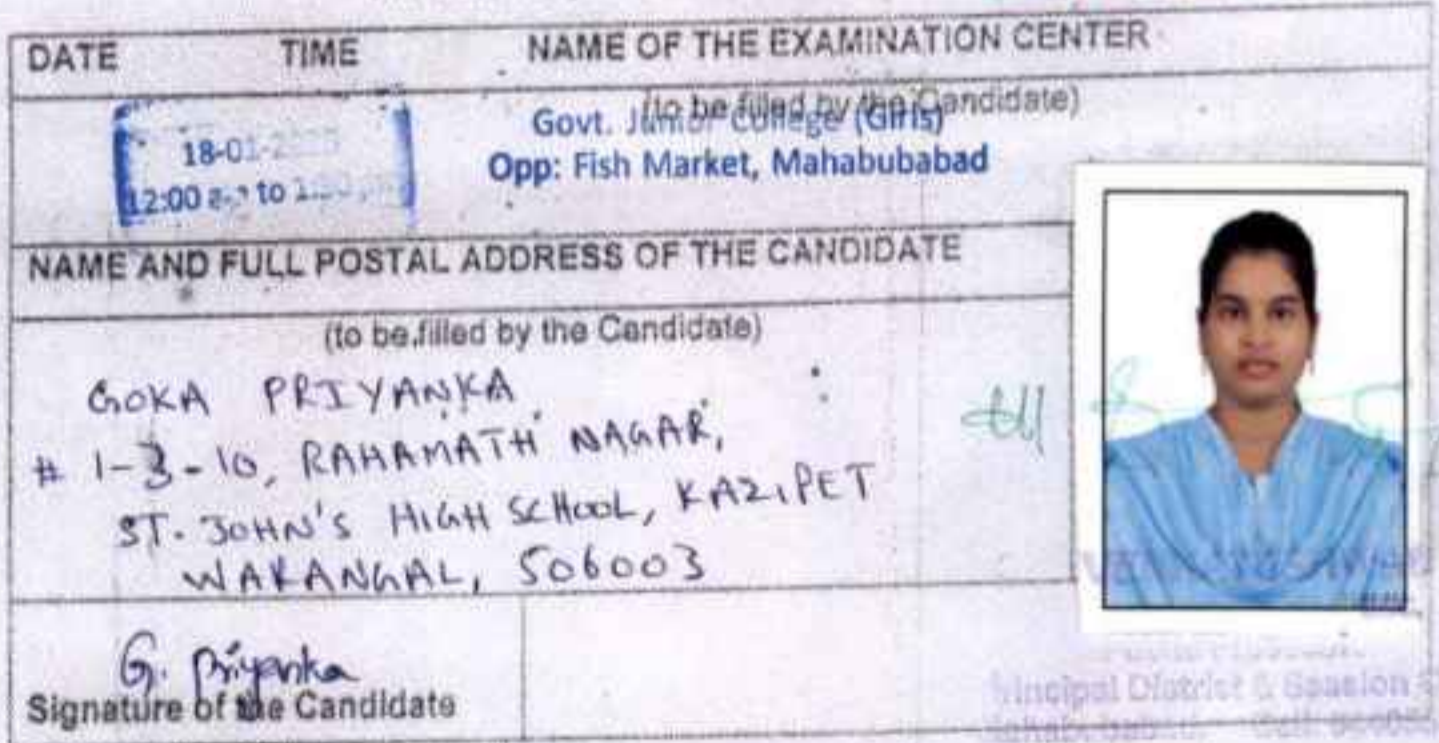 DATE TIME NAME OF THE EXAMINATION CENTER
(to be filled by the Candidate)
18-01-
Govt. Junior College (Girls)
12:00 to
Opp: Fish Market, Mahabubabad
NAME AND FULL POSTAL ADDRESS OF THE CANDIDATE
(to be filled by the Candidate)
GOKA PRIYANKA
# 1-3-10, RAHAMATH NAGAR,
ST. JOHN'S HIGH SCHOOL, KAZIPET
WARANGAL, 506003
G. Priyanka
Signature of the Candidate
District & Session